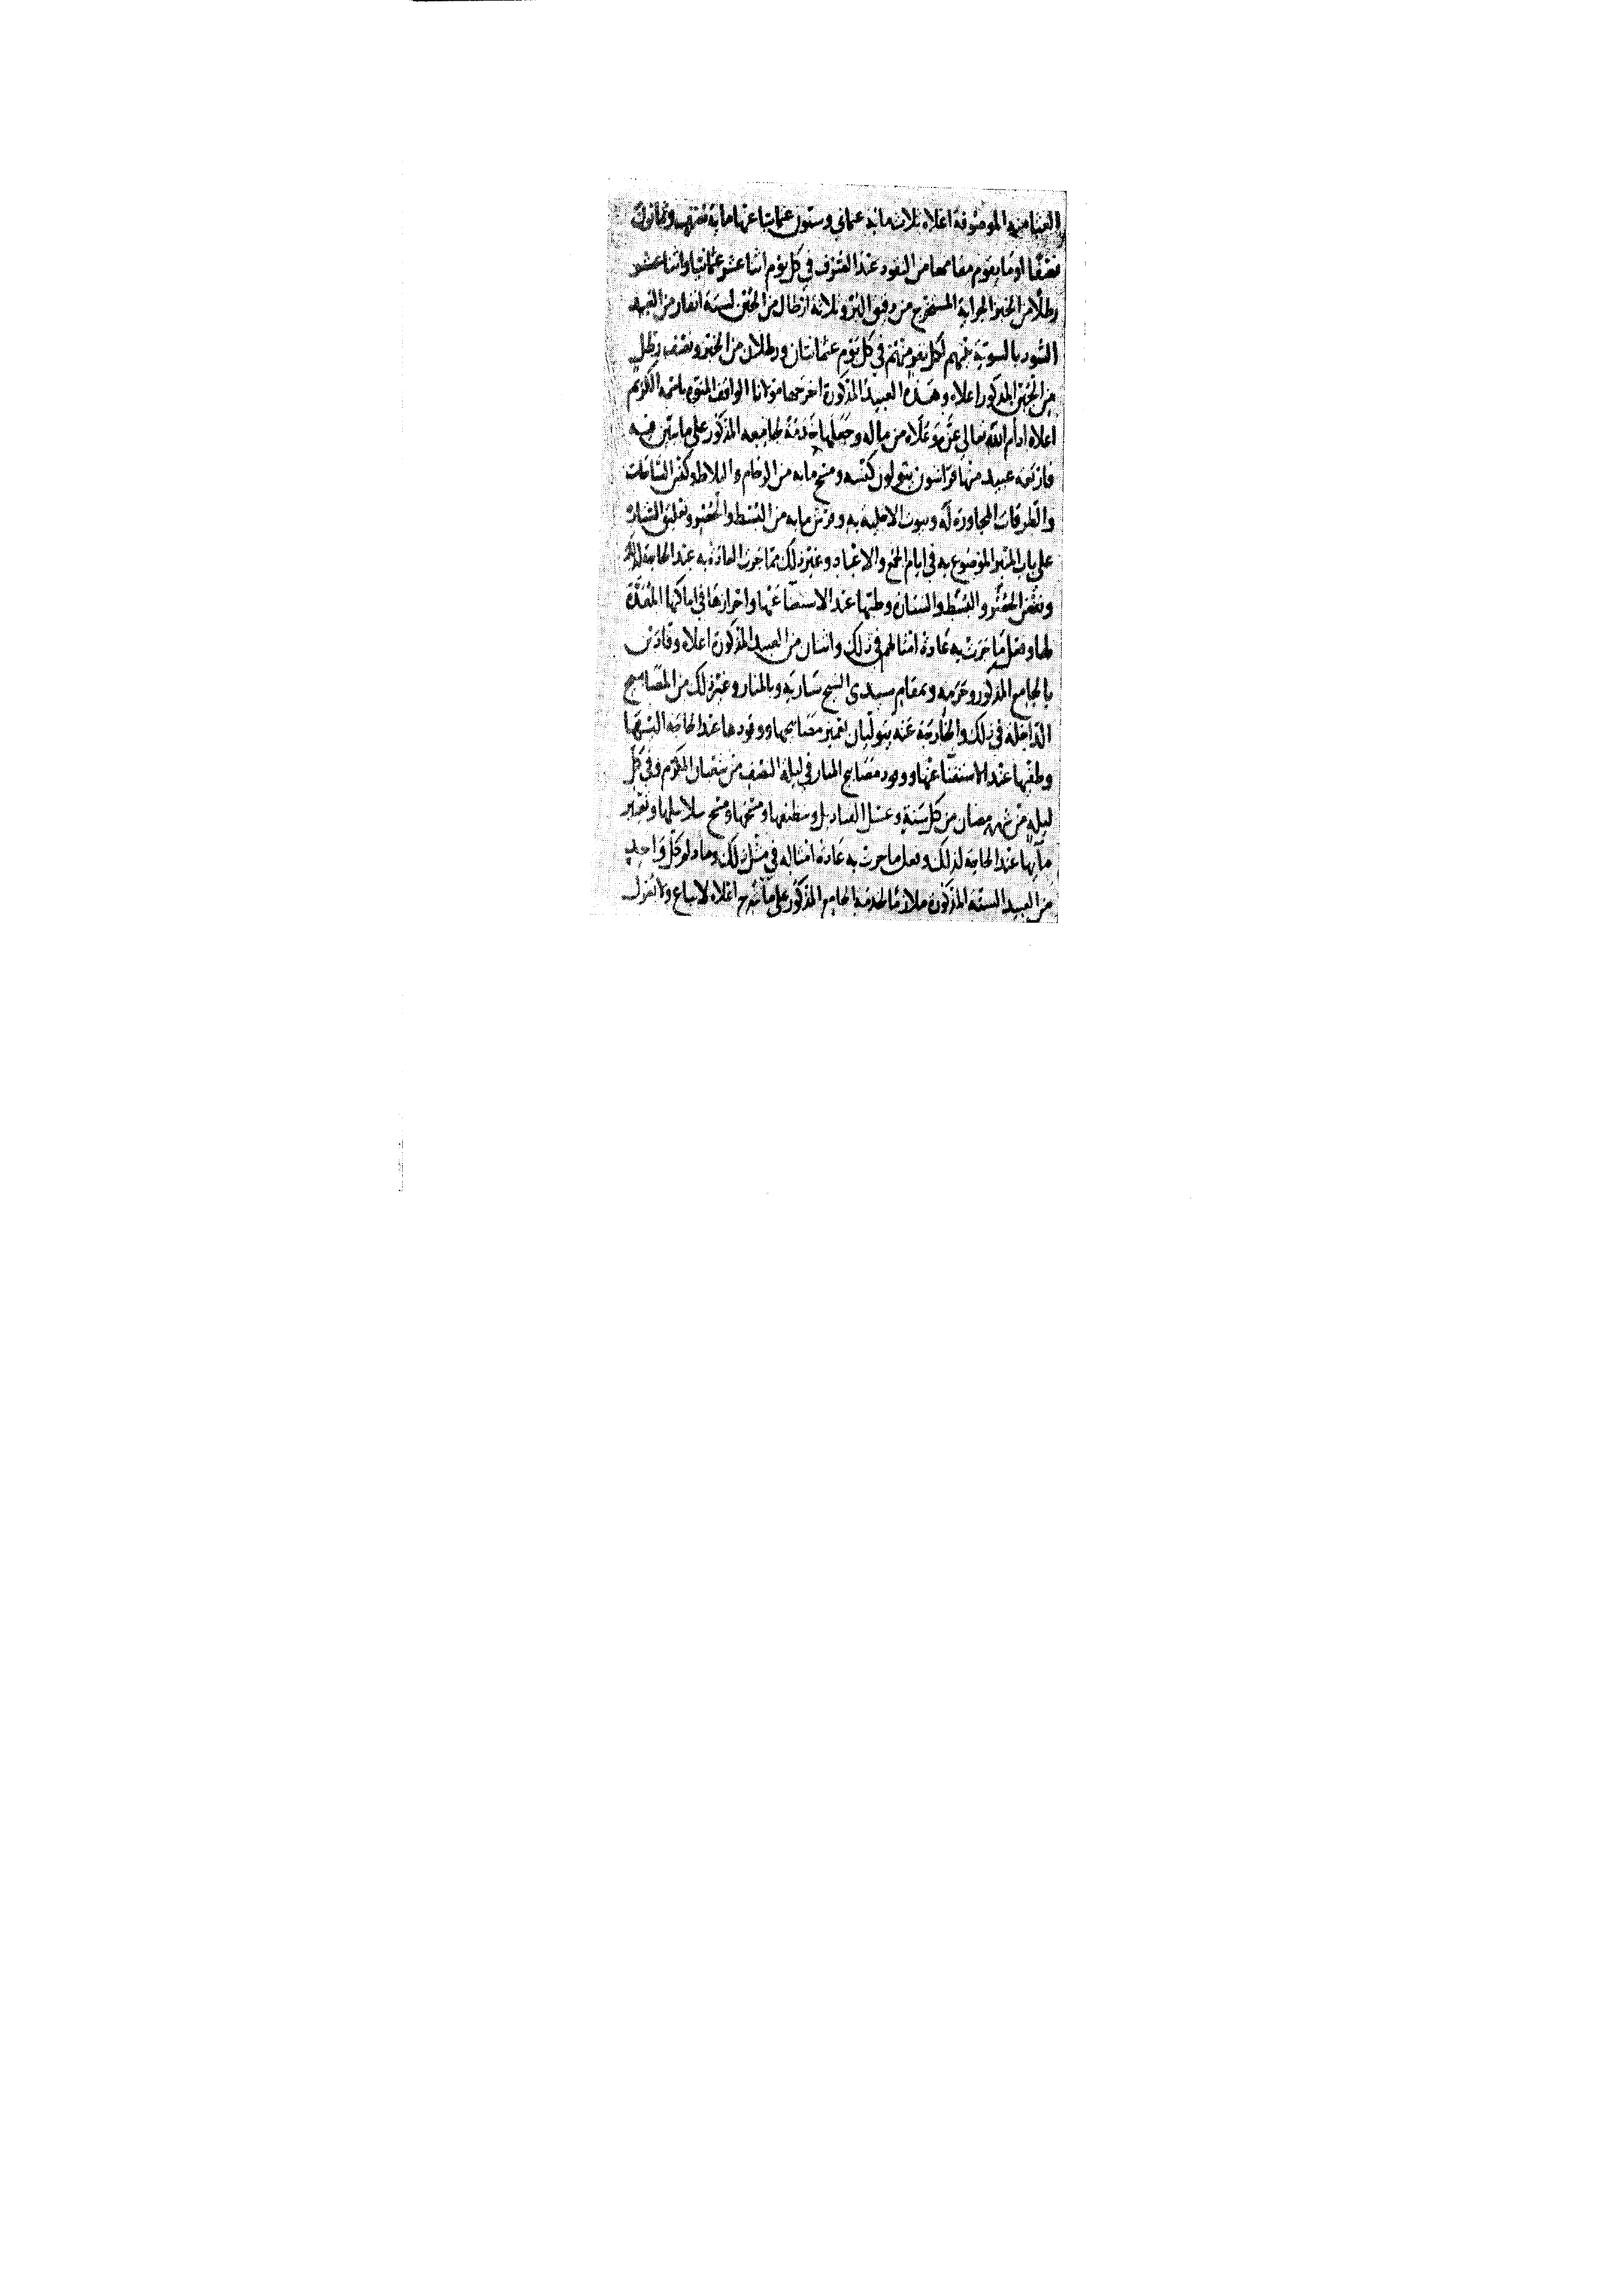 العثمانية الموصوفة اعلاه ثلاث مائة عثماني وستون عثمانيا عنها ماية نصف وثمانون
نصفا او ما يقوم مقامها من النقود عند الصرف في كل يوم اثنا عشر عثمانيا واثنا عشر
رطلا من الخبز الجراية المستخرج من دقيق البر وثلاثة ارطال من الجبن لستة انفار من العبيد
السود بالسوية بينهم لكل نفر منهم في كل يوم عثمانيان ورطلان من الخبز ونصف رطل
من الجبن المذكور اعلاه وهذه العبيد المذكورة اخرجها مولانا الواقف المنوه باسمه الكريم
اعلاه ادام الله تعالى عزه وعلاه من ماله وجعلها خدمة لجامعه المذكور على ما يبين فيه
فاربعة عبيد منها فراشون يتولون كنسه ومسح ما به من الرخام والبلاط وكنس الساحات
والطرقات المجاورة له وبيوت الاخلية به وفرش ما به من البسط والحصر وتعليق الستارة
على باب المنبر الموضوع به في ايام الجمع والاعياد وغير ذلك مما جرت العادة به عند الحاجة لذلك
ونفض الحصر والبسط والستارة وطيها عند الاستغنا عنها واحرازها في اماكنها المعدة
لها وفعل ما جرت به عادة امثالهم في ذلك واثنان من العبيد المذكورة اعلاه وقادين
بالجامع المذكور وحرمه وبمقام سيدي الشيخ سارية وبالمنار وغير ذلك من المصابيح
الداخلة في ذلك والخارجة عنه يتوليان تعمير مصابيحها ووقودها عند الحاجة اليها
وطفيها عند الاستغنا عنها ووقود مصابيح المنار في ليلة النصف من شعبان المكرم وفي كل
ليلة من شهر رمضان من كل سنة وغسل القناديل وتنظيفها ومسحها ومسح سلاسلها وتغيير
مآيها عند الحاجة لذلك وفعل ما جرت به عادة امثاله في مثل ذلك وما دام كل واحد
من العبيد الستة المذكورة ملازما لخدمة الجامع المذكور على ما شرح اعلاه لا يباع ولا يعزل